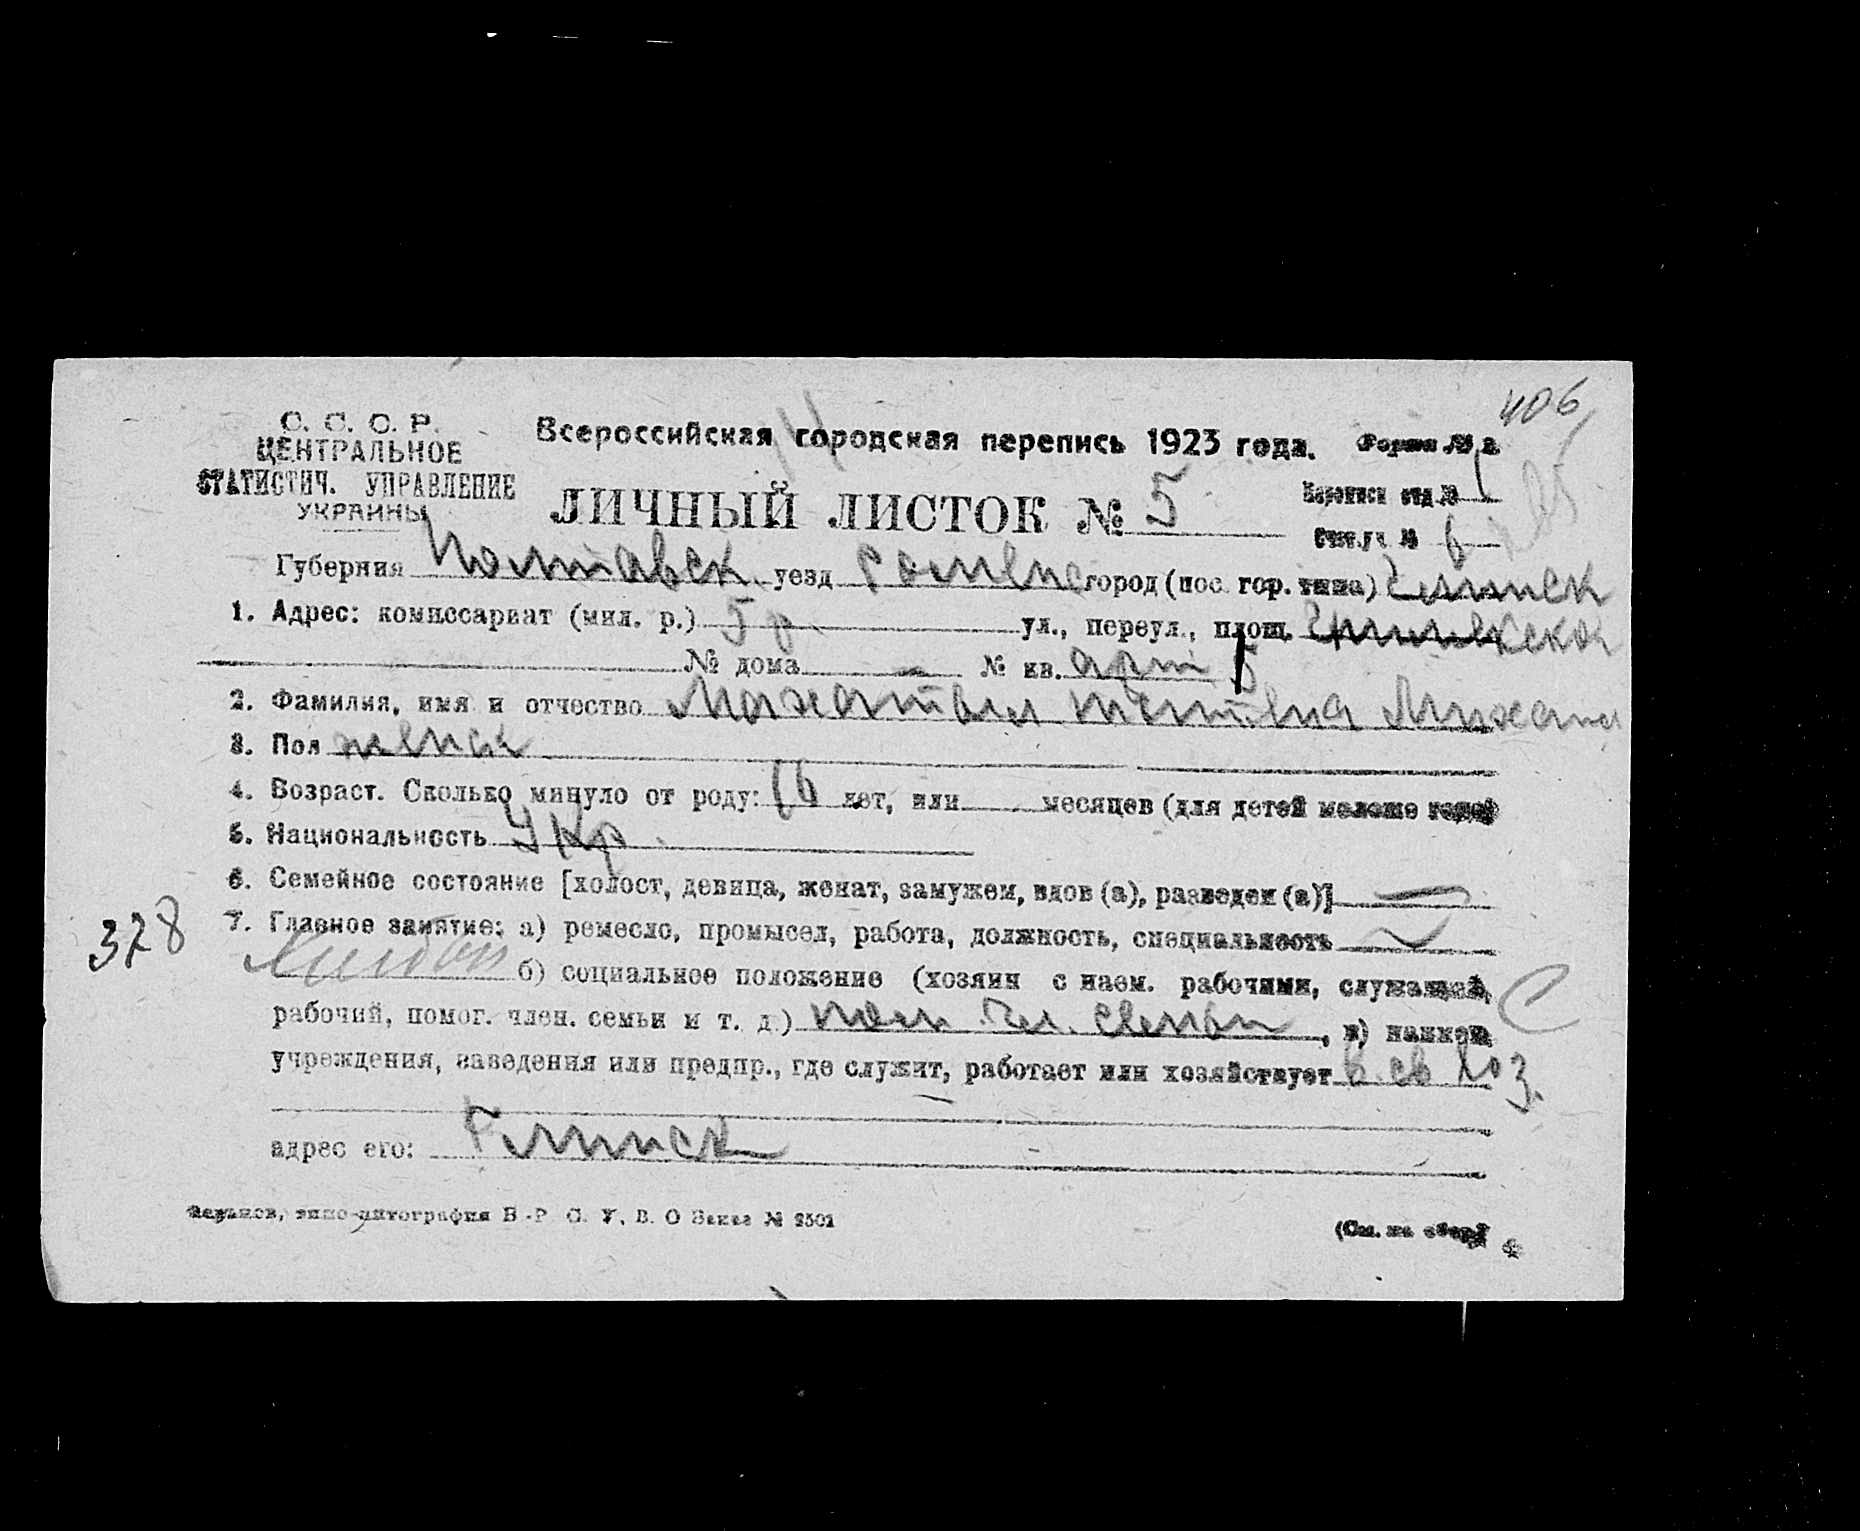 406
С. С. С. Р.
ЦЕНТРАЛЬНОЕ
СТАТИСТИЧ. УПРАВЛЕНИЕ
УКРАИНЫ
Всероссийская городская перепись 1923 года. Форма №
ЛИЧНЫЙ ЛИСТОК № 5
Переписн отд № 1
Счет.уч. № 6
Губерния Полтавск уезд Роменс город (пос. гор. типа) Глинск
1. Адрес: комиссариат (мил. р.) 5 р. ул., переул., площ.
№ дома — № кв. 5
2. Фамилия, имя и отчество
3. Пол женск
4. Возраст. Сколько минуло от роду: 16 лет, или месяцев (для детей моложе года)
5. Национальность Укр.
6. Семейное состояние [холост, девица, женат, замужем, вдов (а), разведен (а)] —
378
7. Главное занятие: а) ремесло, промысел, работа, должность, специальность
б) социальное положение (хозяин с наем. рабочими, служащий,
рабочий, помог. член. семьи и т. д.) пом. чл. семьи, в) наимен.
учреждения, заведения или предпр., где служит, работает или хозяйствует в св хоз.
адрес его: Глинск
типо-литография В.-Р. С. У. В. О Заказ № 2501
(См. на обор.)